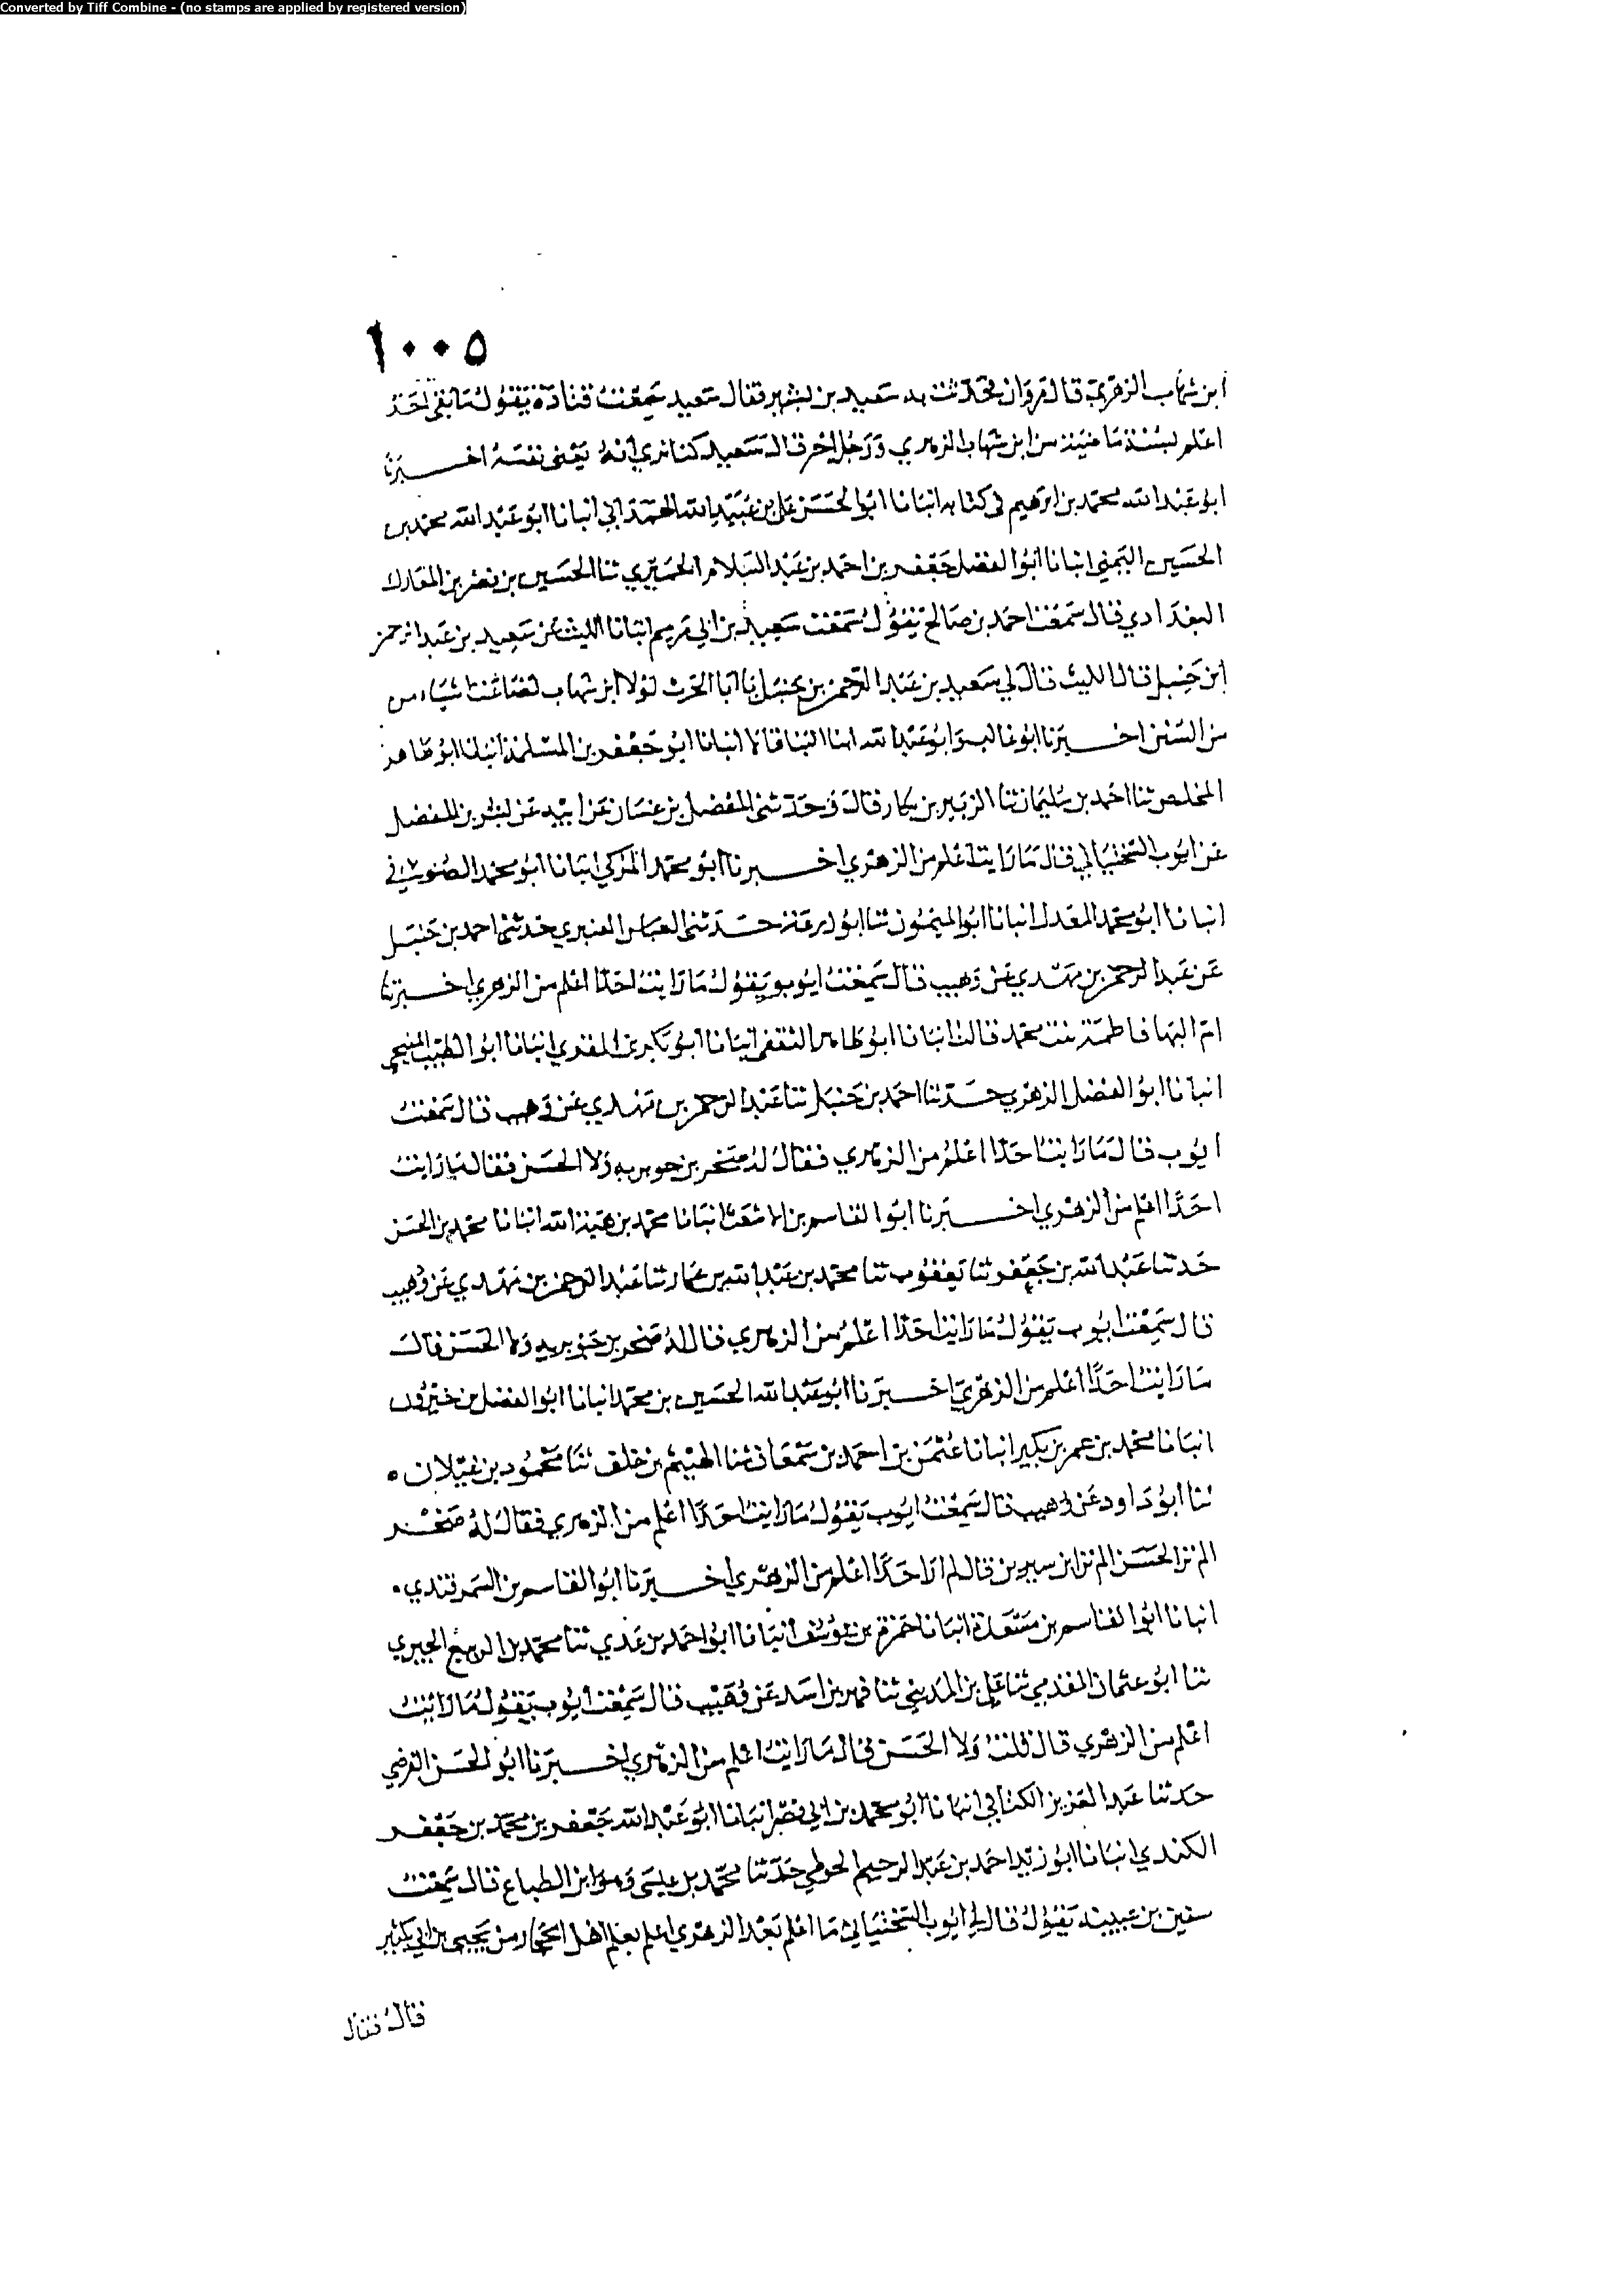 Converted by Tiff Combine - (no stamps are applied by registered version)
١٠٠٥
ابن شهاب الزهري قال مروان فحدثت به سعيد بن بشير فقال سعيد سمعت قتادة يقول ما بقي احد
اعلم بسنة ماضية من ابن شهاب الزهري ورجل اخر قال سعيد كنا نرى انه يعني نفسه اخبرنا
ابو عبد الله محمد بن ابرهيم في كتابه انبانا ابو الحسن علي بن عبيد الله الهمذاني انبانا ابو عبد الله محمد بن
الحسين اليمني انبانا ابو الفضل جعفر بن احمد بن عبد السلام الحميري ثنا الحسين بن نصر بن المعارك
البغدادي قال سمعت احمد بن صالح يقول سمعت سعيد بن ابي مريم انبانا الليث عن سعيد بن عبد الرحمن
ابن جنبل قال الليث قال لي سعيد بن عبد الرحمن بن جنبل يا ابا الحرث لولا ابن شهاب لضاعت اشياء من
من السنن اخبرنا ابو غالب وابو عبد الله ابنا البنا قالا انبانا ابو جعفر بن المسلمة انبانا ابو طاهر
المخلص ثنا احمد بن سليمان ثنا الزبير بن بكار قال وحدثني المفضل بن غسان عن ابيه عن بشر بن المفضل
عن ايوب السختياني قال ما رايت اعلم من الزهري اخبرنا ابو محمد المزكي انبانا ابو محمد الصوفي
انبانا ابو محمد المعدل انبانا ابو الميمون ثنا ابو زرعة حدثني العباس العنبري حدثني احمد بن حنبل
عن عبد الرحمن بن مهدي عن وهيب قال سمعت ايوب يقول ما رايت احدا اعلم من الزهري اخبرتنا
ام البها فاطمة بنت محمد قالت انبانا ابو طاهر الثقفي انبانا ابو بكر بن المقري انبانا ابو الطيب المنبجي
انبانا ابو الفضل الزهري حدثنا احمد بن حنبل ثنا عبد الرحمن بن مهدي عن وهيب قال سمعت
ايوب قال ما رايت احدا اعلم من الزهري فقال له صخر بن جويرية ولا الحسن فقال ما رايت
احدا اعلم من الزهري اخبرنا ابو القاسم بن الاشعث انبانا محمد بن هبة الله انبانا محمد بن الحسن
حدثنا عبد الله بن جعفر ثنا يعقوب ثنا محمد بن عبد الله بن عمار ثنا عبد الرحمن بن مهدي عن وهيب
قال سمعت ايوب يقول ما رايت احدا اعلم من الزهري قال له صخر بن جويرية ولا الحسن قال
ما رايت احدا اعلم من الزهري اخبرنا ابو عبد الله الحسين بن محمد انبانا ابو الفضل بن خيرون
انبانا محمد بن عمر بن بكير انبانا عثمن بن احمد بن سمعان ثنا الهيثم بن خلف ثنا محمود بن غيلان ه
ثنا ابو داود عن وهيب قال سمعت ايوب يقول ما رايت احدا اعلم من الزهري فقال له صخر
الم تر الحسن الم تر ابن سيرين قال لم ار احدا اعلم من الزهري اخبرنا ابو القاسم بن السمرقندي .
انبانا ابو القاسم بن مسعدة انبانا حمزة بن يوسف انبانا ابو احمد بن عدي ثنا محمد بن الربيع الجيزي
ثنا ابو عثمان المقدمي ثنا علي بن المديني ثنا بهز بن اسد عن وهيب قال سمعت ايوب يقول ما رايت
اعلم من الزهري قال قلت ولا الحسن قال ما رايت اعلم من الزهري اخبرنا ابو الحسن الفرضي
حدثنا عبد العزيز الكتاني انبانا ابو محمد بن ابي نصر انبانا ابو عبد الله جعفر بن محمد بن جعفر
الكندي انبانا ابو زيد احمد بن عبد الرحيم الحوطي حدثنا محمد بن عيسى وهو ابن الطباع قال سمعت
سفين بن عيينة يقول قال لي ايوب السختياني ما اعلم بعد الزهري اعلم بعلم اهل الحجاز من يحيى بن ابي كثير
قال فقال